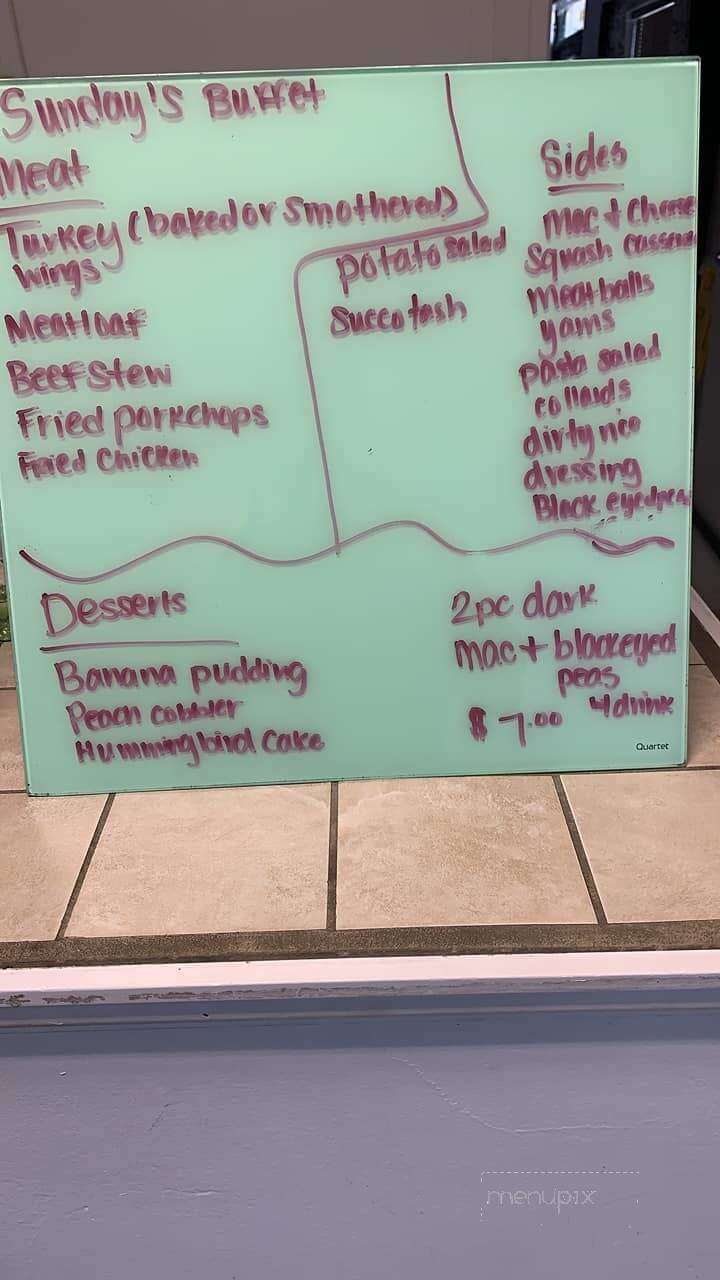 Sunday's Buffet
Meat
Turkey (baked or smothered)
wings
Meatloaf
Beef Stew
Fried porkchops
Fried Chicken
potato salad
Succotash
Sides
mac + cheese
Squash
meatballs
yams
pasta salad
collards
dirty rice
dressing
Black eyed pea
Desserts
Banana pudding
Peach cobbler
Hummingbird Cake
2pc dark
mac + blackeyed
peas
$ 7.00 4 drink
Quartet
menupix